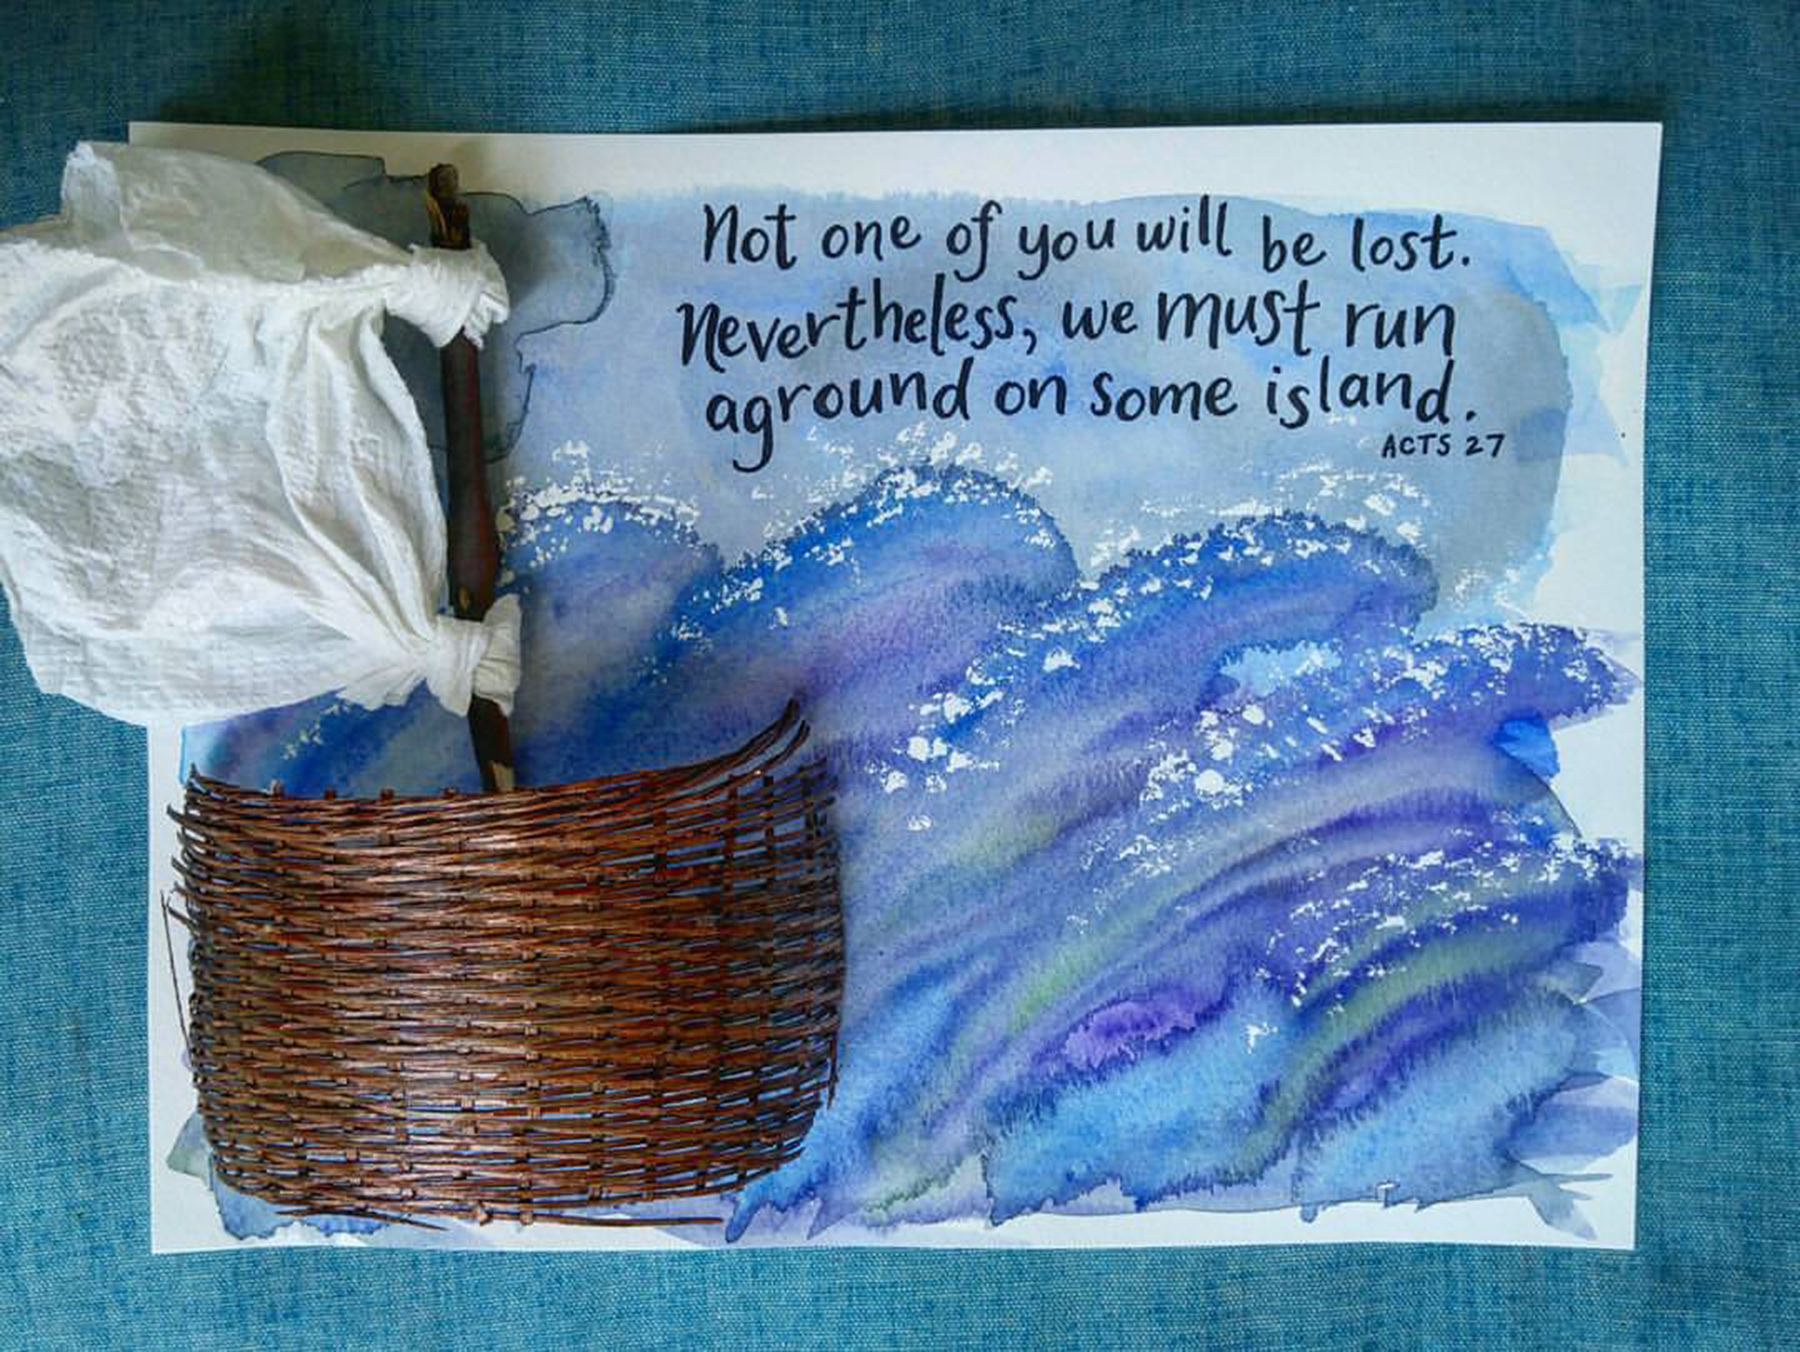 Not one of you will be lost.
Nevertheless, we must run
aground on some island.
ACTS 27